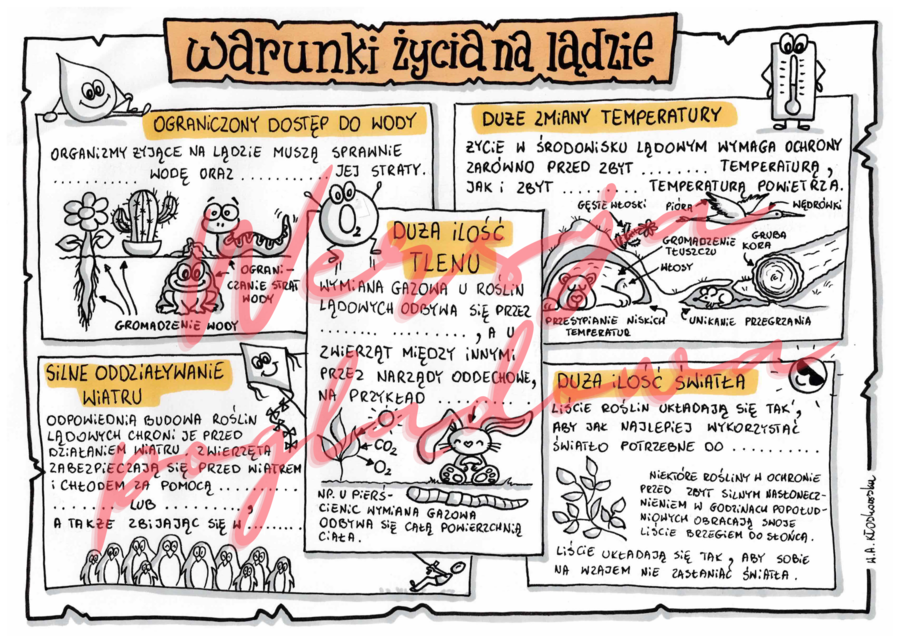 Warunki życia na lądzie
OGRANICZONY DOSTĘP DO WODY
ORGANIZMY ŻYJĄCE NA LĄDZIE MUSZĄ SPRAWNIE
.................... WODĘ ORAZ ............ JEJ STRATY.
OGRANI-
CZANIE STRAT
WODY
GROMADZENIE WODY
DUŻE ZMIANY TEMPERATURY
ŻYCIE W ŚRODOWISKU LĄDOWYM WYMAGA OCHRONY
ZARÓWNO PRZED ZBYT ......... TEMPERATURĄ,
JAK I ZBYT ......... TEMPERATURĄ POWIETRZA.
GĘSTE WŁOSKI
PIÓRA
WĘDRÓWKI
GROMADZENIE
TŁUSZCZU
GRUBA
KORA
WŁOSY
PRZESYPIANIE NISKICH
TEMPERATUR
UNIKANIE PRZEGRZANIA
O2
DUŻA ILOŚĆ
TLENU
WYMIANA GAZOWA U ROŚLIN
LĄDOWYCH ODBYWA SIĘ PRZEZ
............ ............, A U
ZWIERZĄT MIĘDZY INNYMI
PRZEZ NARZĄDY ODDECHOWE,
NA PRZYKŁAD .........
CO2
O2
NP. U PIERŚ-
CIENIC WYMIANA GAZOWA
ODBYWA SIĘ CAŁĄ POWIERZCHNIĄ
CIAŁA.
SILNE ODDZIAŁYWANIE
WIATRU
ODPOWIEDNIA BUDOWA ROŚLIN
LĄDOWYCH CHRONI JE PRZED
DZIAŁANIEM WIATRU. ZWIERZĘTA
ZABEZPIECZAJĄ SIĘ PRZED WIATREM
I CHŁODEM ZA POMOCĄ ............
............ LUB ............,
A TAKŻE ZBIJAJĄC SIĘ W .........
DUŻA ILOŚĆ ŚWIATŁA
LIŚCIE ROŚLIN UKŁADAJĄ SIĘ TAK,
ABY JAK NAJLEPIEJ WYKORZYSTAĆ
ŚWIATŁO POTRZEBNE DO ............
NIEKTÓRE ROŚLINY W OCHRONIE
PRZED ZBYT SILNYM NASŁONECZ-
NIENIEM W GODZINACH POPOŁUD-
NIOWYCH OBRACAJĄ SWOJE
LIŚCIE BRZEGIEM DO SŁOŃCA.
LIŚCIE UKŁADAJĄ SIĘ TAK, ABY SOBIE
NA WZAJEM NIE ZASŁANIAĆ ŚWIATŁA.
Wersja
poglądowa